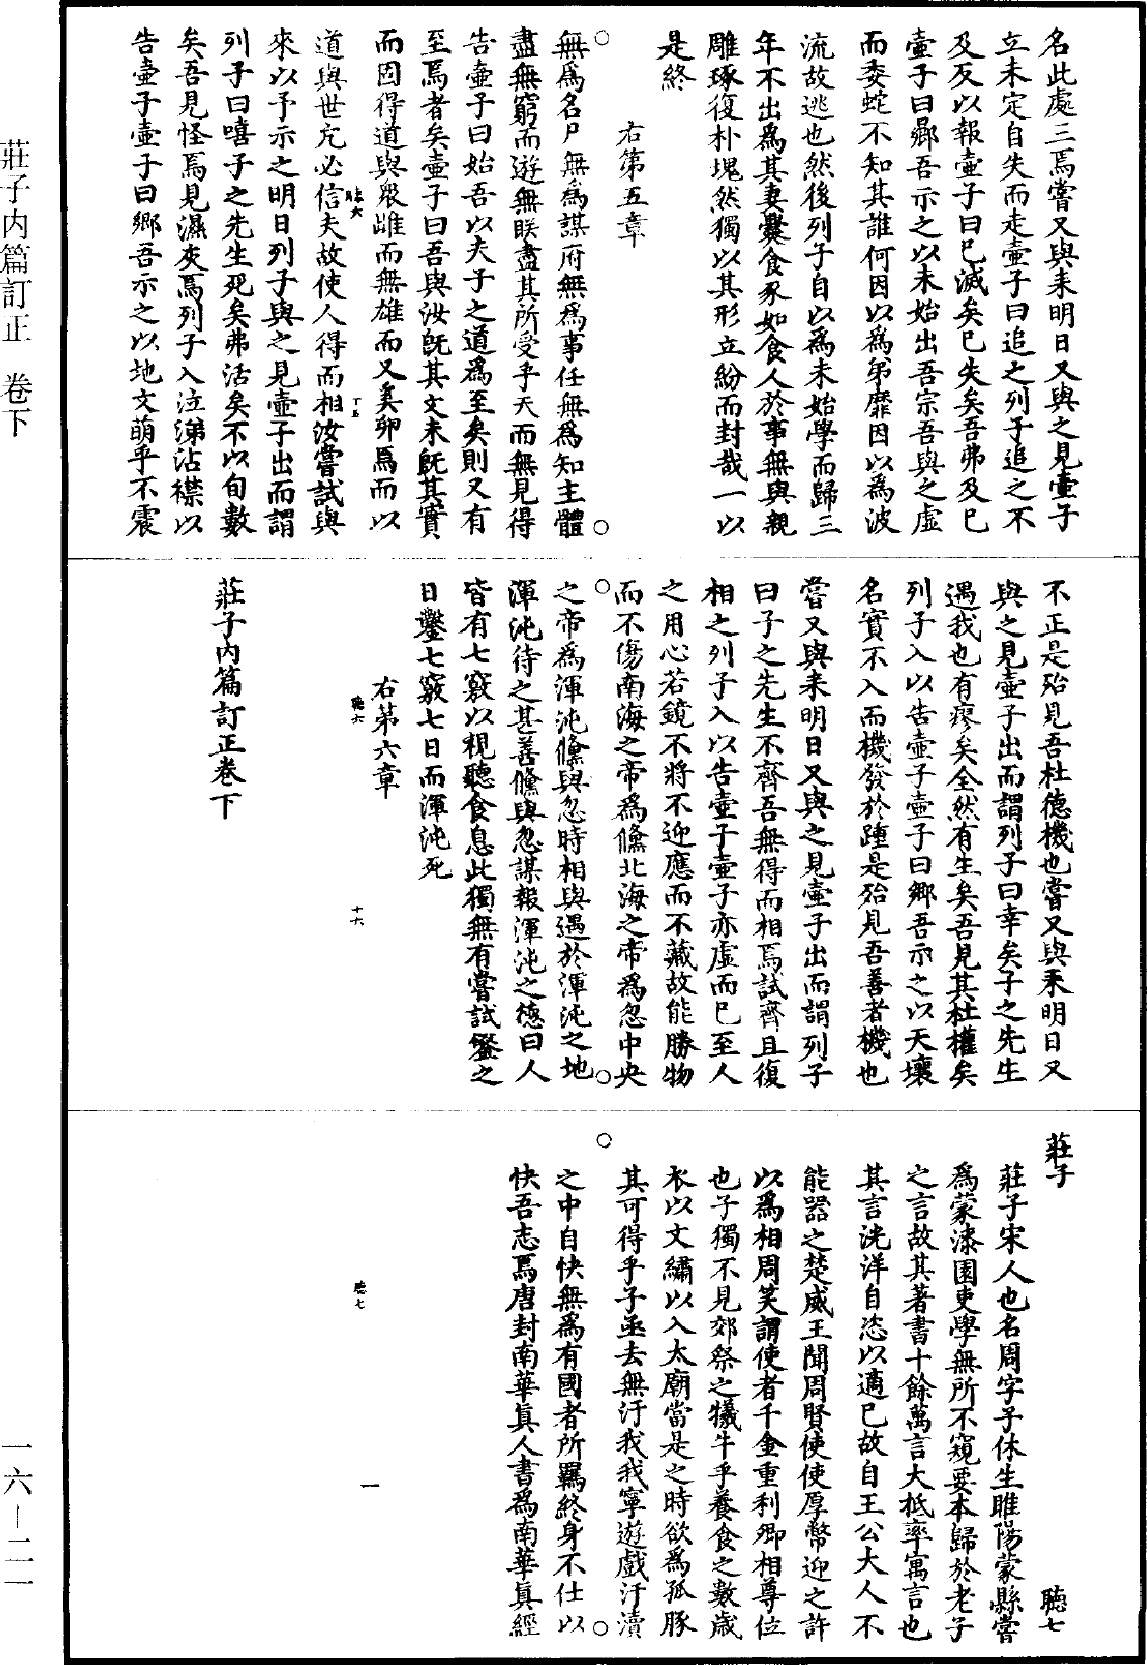 莊子內篇訂正 卷下
一六—二一
名此處三焉嘗又與来明日又與之見壺子
立未定自失而走壺子曰追之列子追之不
及反以報壺子曰已滅矣已失矣吾弗及已
壺子曰鄉吾示之以未始出吾宗吾與之虛
而委蛇不知其誰何因以爲弟靡因以爲波
流故逃也然後列子自以爲未始學而歸三
年不出爲其妻爨食豕如食人於事無與親
雕琢復朴塊然獨以其形立紛而封哉一以
是終
右第五章
無爲名尸無爲謀府無爲事任無爲知主體
盡無窮而遊無眹盡其所受乎天而無見得
告壺子曰始吾以夫子之道爲至矣則又有
至焉者矣壺子曰吾與汝既其文未既其實
而固得道與衆雌而無雄而又奚卵焉而以
聽六 十五
道與世亢必信夫故使人得而相汝嘗試與
來以予示之明日列子與之見壺子出而謂
列子曰嘻子之先生死矣弗活矣不以旬數
矣吾見怪焉見濕灰焉列子入泣涕沾襟以
告壺子壺子曰鄉吾示之以地文萌乎不震
不正是殆見吾杜德機也嘗又與来明日又
與之見壺子出而謂列子曰幸矣子之先生
遇我也有瘳矣全然有生矣吾見其杜權矣
列子入以告壺子壺子曰鄉吾示之以天壤
名實不入而機發於踵是殆見吾善者機也
嘗又與来明日又與之見壺子出而謂列子
曰子之先生不齊吾無得而相焉試齊且復
相之列子入以告壺子壺子亦虛而已至人
之用心若鏡不將不迎應而不藏故能勝物
而不傷南海之帝爲儵北海之帝爲忽中央
之帝爲渾沌儵與忽時相與遇於渾沌之地
渾沌待之甚善儵與忽謀報渾沌之德曰人
皆有七竅以視聽食息此獨無有嘗試鑿之
日鑿七竅七日而渾沌死
右第六章
聽六 十六
莊子內篇訂正卷下
莊子 聽七
莊子宋人也名周字子休生睢陽蒙縣嘗
爲蒙漆園吏學無所不窺要本歸於老子
之言故其著書十餘萬言大抵率寓言也
其言洸洋自恣以適已故自王公大人不
能器之楚威王聞周賢使使厚幣迎之許
以爲相周笑謂使者千金重利卿相尊位
也子獨不見郊祭之犧牛乎養食之數歲
衣以文繡以入太廟當是之時欲爲孤豚
其可得乎子亟去無汙我我寧遊戲汙瀆
之中自快無爲有國者所羈終身不仕以
快吾志焉唐封南華真人書爲南華真經
聽七 一